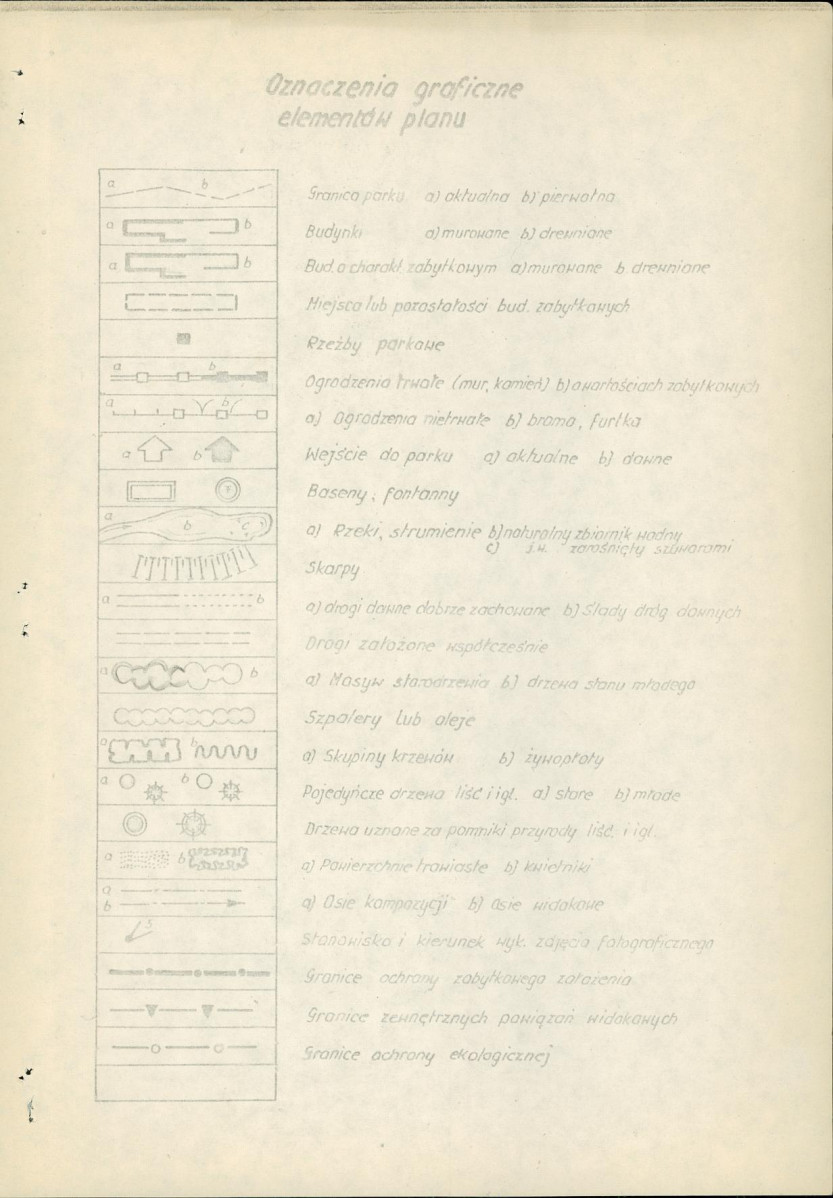 Oznaczenia graficzne
elementów planu
a b Granica parku a) aktualna b) pierwotna
a b Budynki a) murowane b) drewniane
a b Bud. o charakt. zabytkowym a) murowane b drewniane
Miejsca lub pozostałości bud. zabytkowych
Rzeźby parkowe
a b Ogrodzenia trwałe (mur, kamień) b) o wartościach zabytkowych
a b a) Ogrodzenia nietrwałe b) brama, furtka
a b Wejście do parku a) aktualne b) dawne
Baseny, fontanny
a b c a) Rzeki, strumienie b) naturalny zbiornik wodny
c) j.w. zarośnięty szuwarami
Skarpy
a b a) drogi dawne dobrze zachowane b) ślady dróg dawnych
Drogi założone współcześnie
a b a) Masyw starodrzenia b) drzewa stanu młodego
Szpalery lub aleje
a b a) Skupiny krzewów b) żywopłoty
a b Pojedyńcze drzewa liść i igl. a) stare b) młode
Drzewa uznane za pomniki przyrody liść. i igl.
a b a) Powierzchnie trawiaste b) kwietniki
a a) Osie kompozycji b) Osie widokowe
b
5 Stanowiska i kierunek wyk. zdjęcia fotograficznego
Granice ochrony zabytkowego założenia
Granice zewnętrznych powiązań widokowych
Granice ochrony ekologicznej